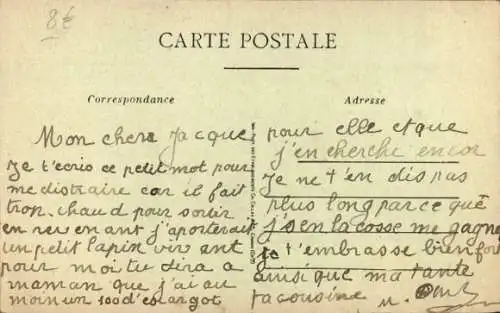 8€
CARTE POSTALE
Correspondance
Adresse
Mon chere Jacque
Je t'ecris ce petit mot pour
me distraire car il fait
trop chaud pour sortir
en revenant j'aporterait
un petit lapin vivant
pour moi tu dira a
maman que j'ai au
moin un 100 d'escargot
pour elle et que
j'en cherche encor
Je ne t'en dis pas
plus long parce que
la cosse me gagne
Je t'embrasse bien fort
ainsi que ma tante
ta cousine